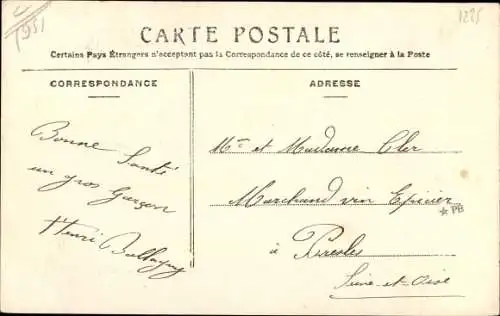 1225
CARTE POSTALE
Certains Pays Étrangers n'acceptant pas la Correspondance de ce côté, se renseigner à la Poste
CORRESPONDANCE
ADRESSE
Bonne Santé
un gros Garçon
Henri
Mr et Madame Cler
Marchand vin Epicier
* PB
à Presles
Seine-et-Oise